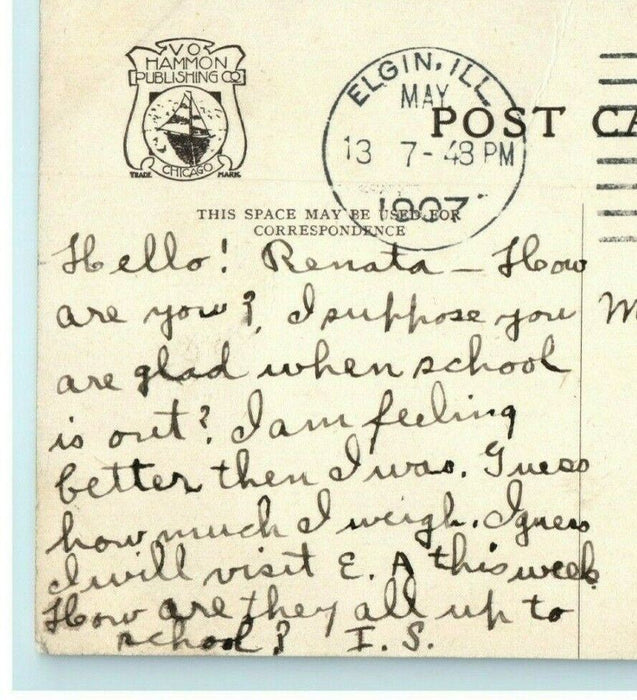 V O
HAMMON
PUBLISHING CO
CHICAGO
TRADE MARK
ELGIN, ILL.
MAY
13 7-43 PM
1907
POST CA
THIS SPACE MAY BE USED FOR
CORRESPONDENCE
Hello! Renata – How
are you? I suppose you
are glad when school
is out? I am feeling
better then I was. Guess
how much I weigh. I guess
I will visit E. A this week
How are they all up to
school? I. S.
M